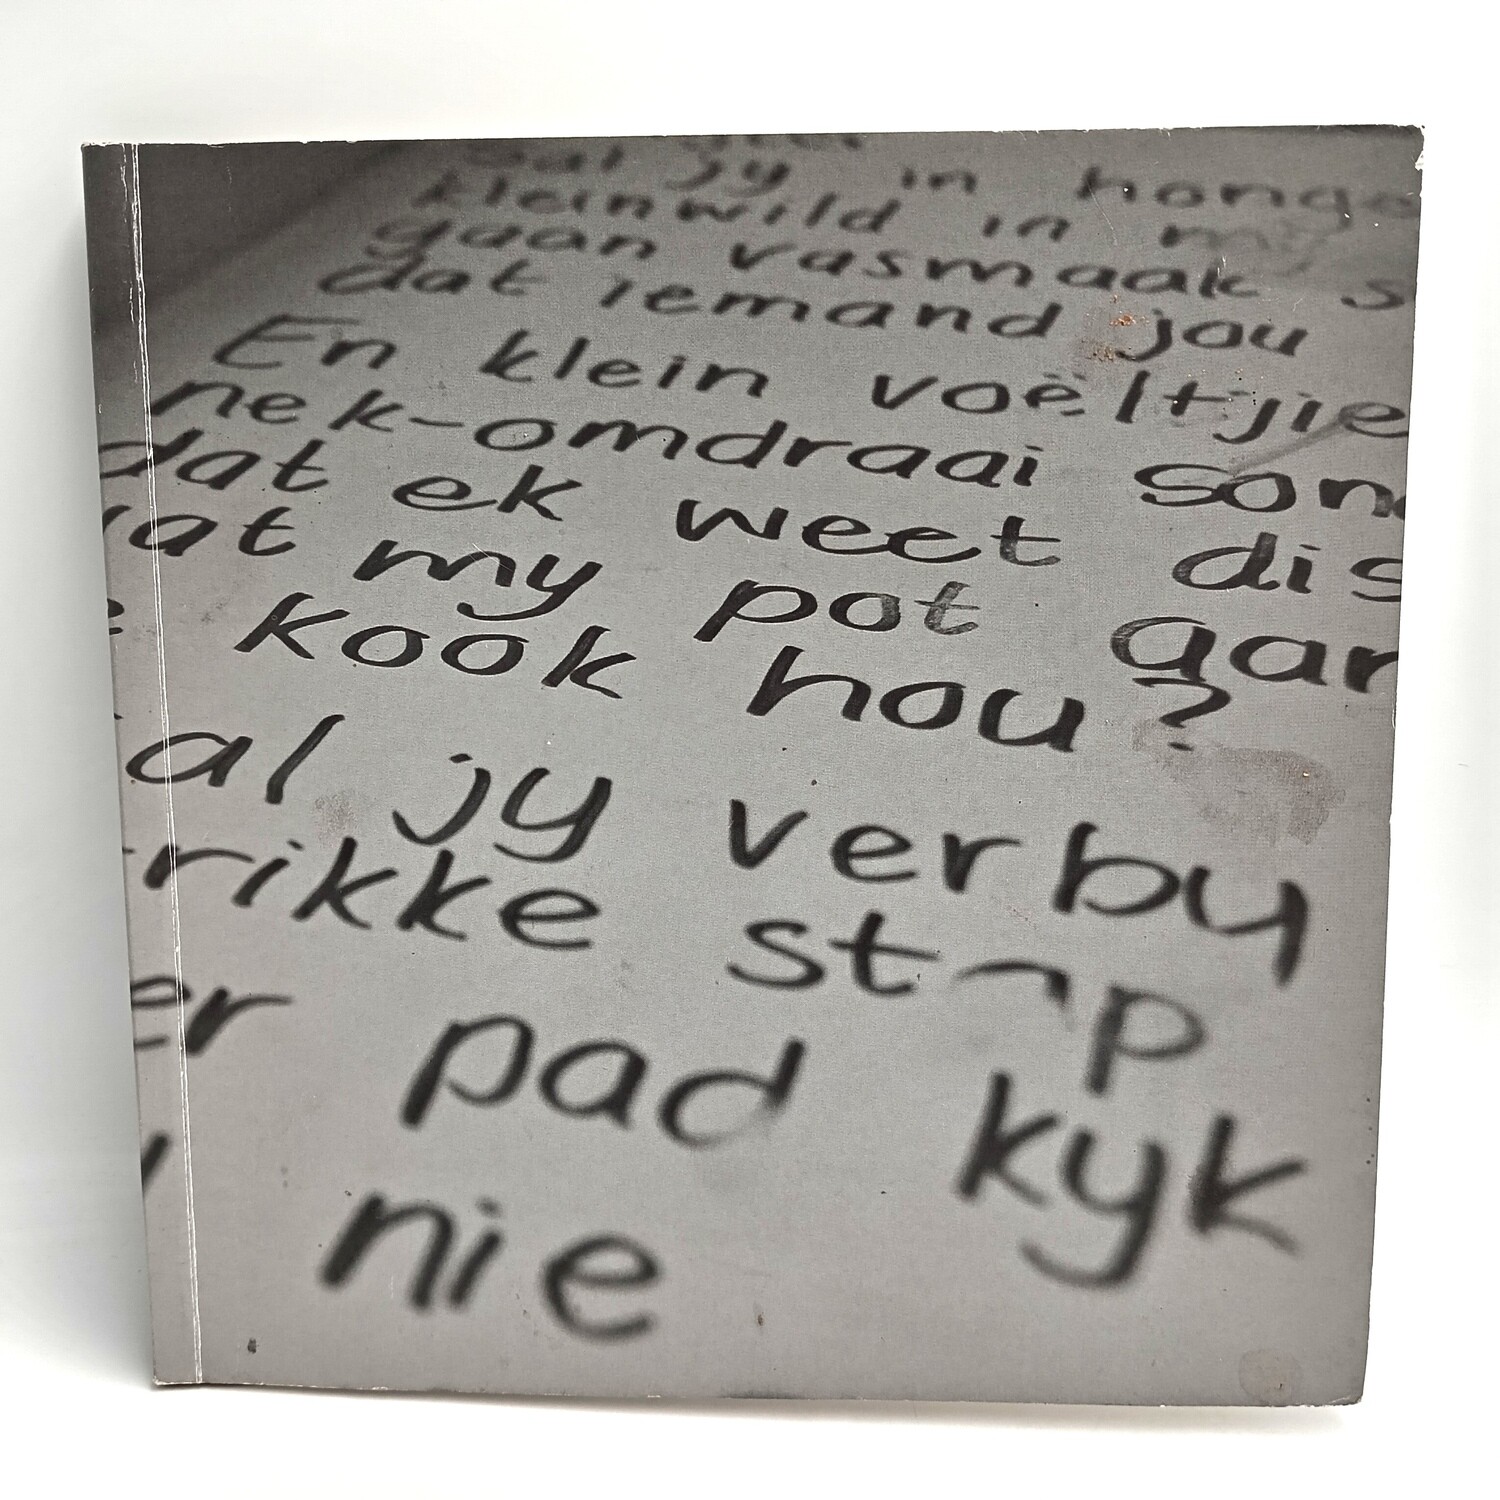 sal jy in honge
kleinwild in my
gaan vasmaak s
dat iemand jou
En klein voëltjie
nek-omdraai son
dat ek weet dis
at my pot gar
e kook hou?
al jy verby
rikke stap
er pad kyk
nie